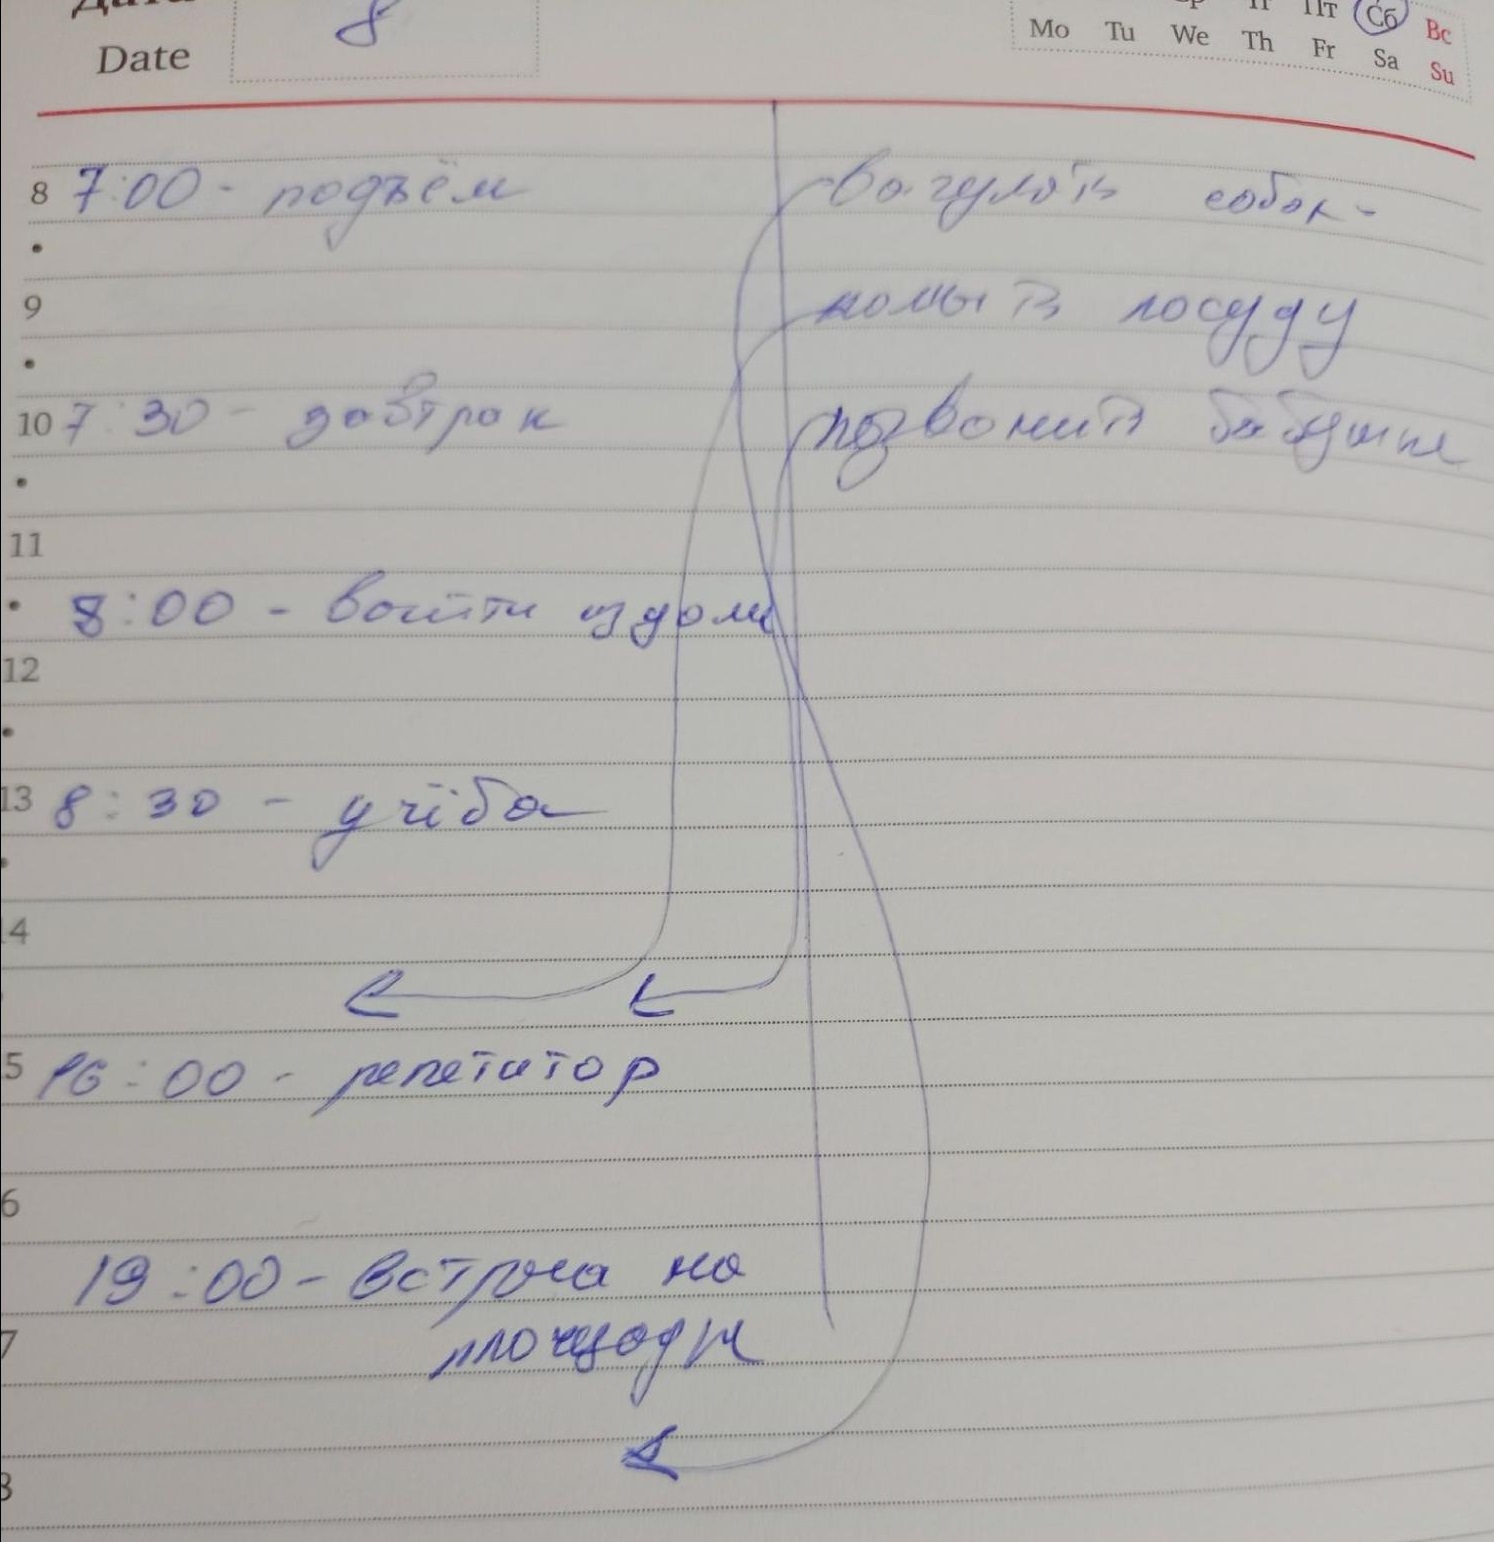 Дата
Date 8
Пт Сб Вс
Mo Tu We Th Fr Sa Su
8 7:00 - подъём
9
10 7:30 - завтрак
11
8:00 - выйти из дома
12
13 8:30 - учёба
14
5 16:00 - репетитор
6
19:00 - встреча на
7 площади
8
выгулять собак-
помыть посуду
позвонить бабушке